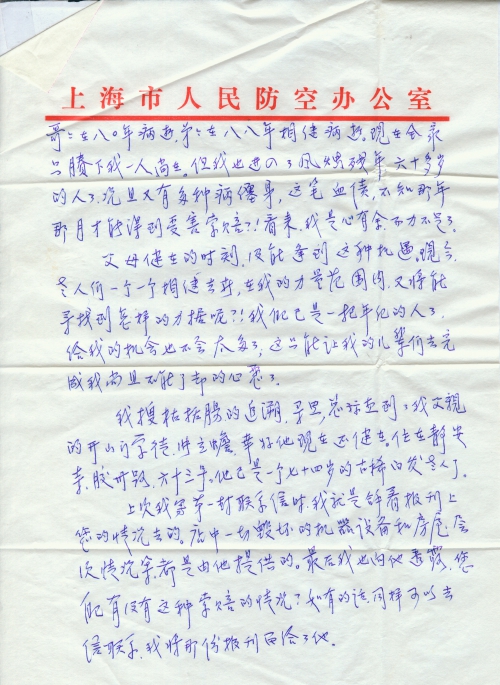 上海市人民防空办公室
哥哥在八〇年病逝，弟弟在八八年相继病逝，现在全家
只剩下我一人尚在。但我也进入了风烛残年，六十多岁
的人了，况且又有多种病缠身，这笔血债，不知那年
那月才能得到受害索赔？！看来，我是心有余，而力不足了。
父母健在的时刻，没能逢到这种机遇。现今，
老人们一个一个相继去世，在我的力量范围内，又将能
寻找到怎样的力据呢？！我们已是一把年纪的人了，
给我的机会也不会太多了，这只能让我的儿辈们去完
成我尚且不能了却的心愿了。
我搜枯肠的追溯，寻思，总算查到了我父亲
的开山门学徒，幸好他现在还健在。住在静安
他已是一个七十四岁的古稀白发老人了。
上次我寄第一封联系信时，我就是锌看报刊上
您的情况去的，店中一切毁坏的机器设备和房屋，
情况等，都是由他提供的。最后我也向他透露，您
们有没有这种索赔的情况？如有的话，同样可以去
信联系，我将那份报刊留给了他。